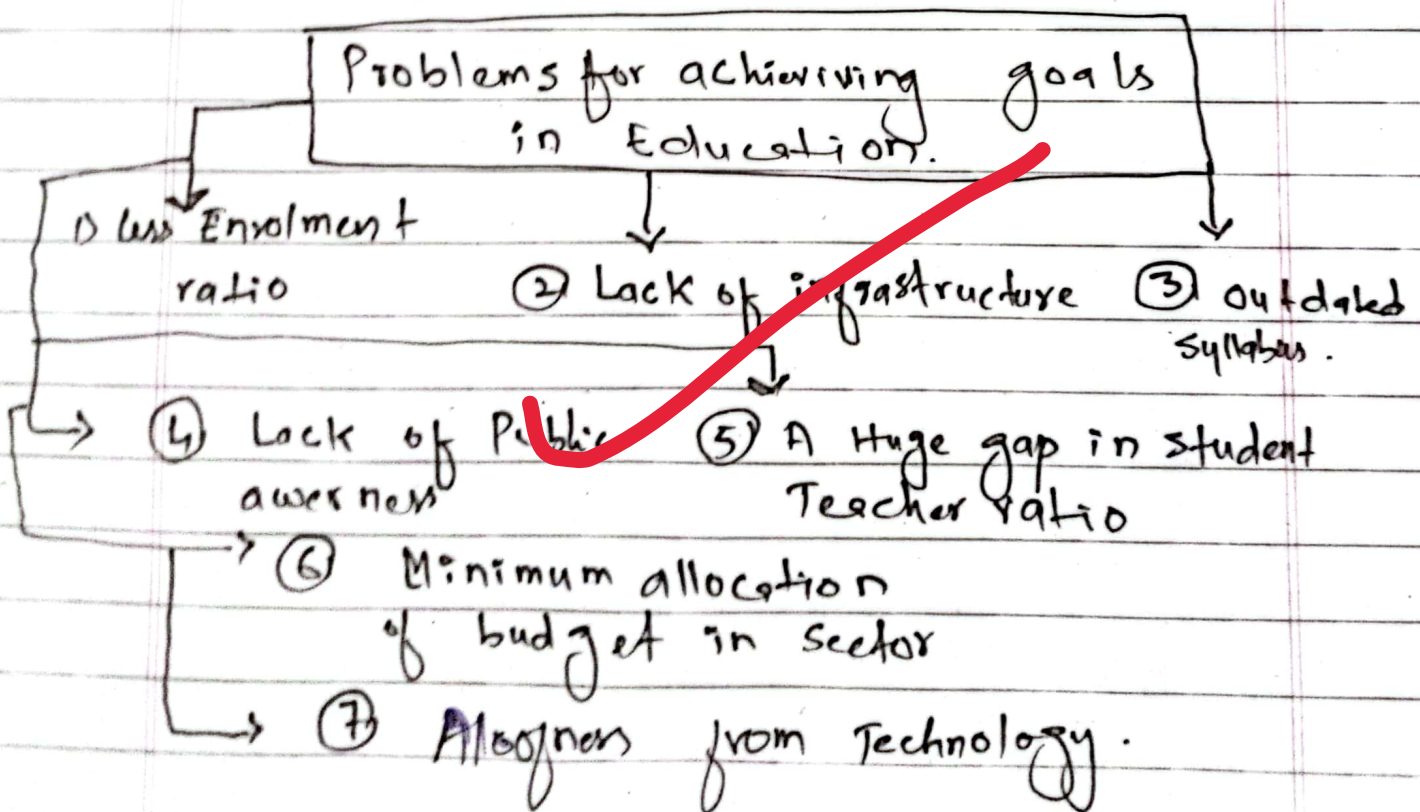 Problems for achieriving goals
in Education.
1) less Enrolment
ratio
② Lack of infrastructure
③ outdated
syllabus.
④ Lack of Public
awerness
⑤ A Huge gap in student
Teacher ratio
⑥ Minimum allocation
of budget in sector
⑦ Aloofness from Technology.